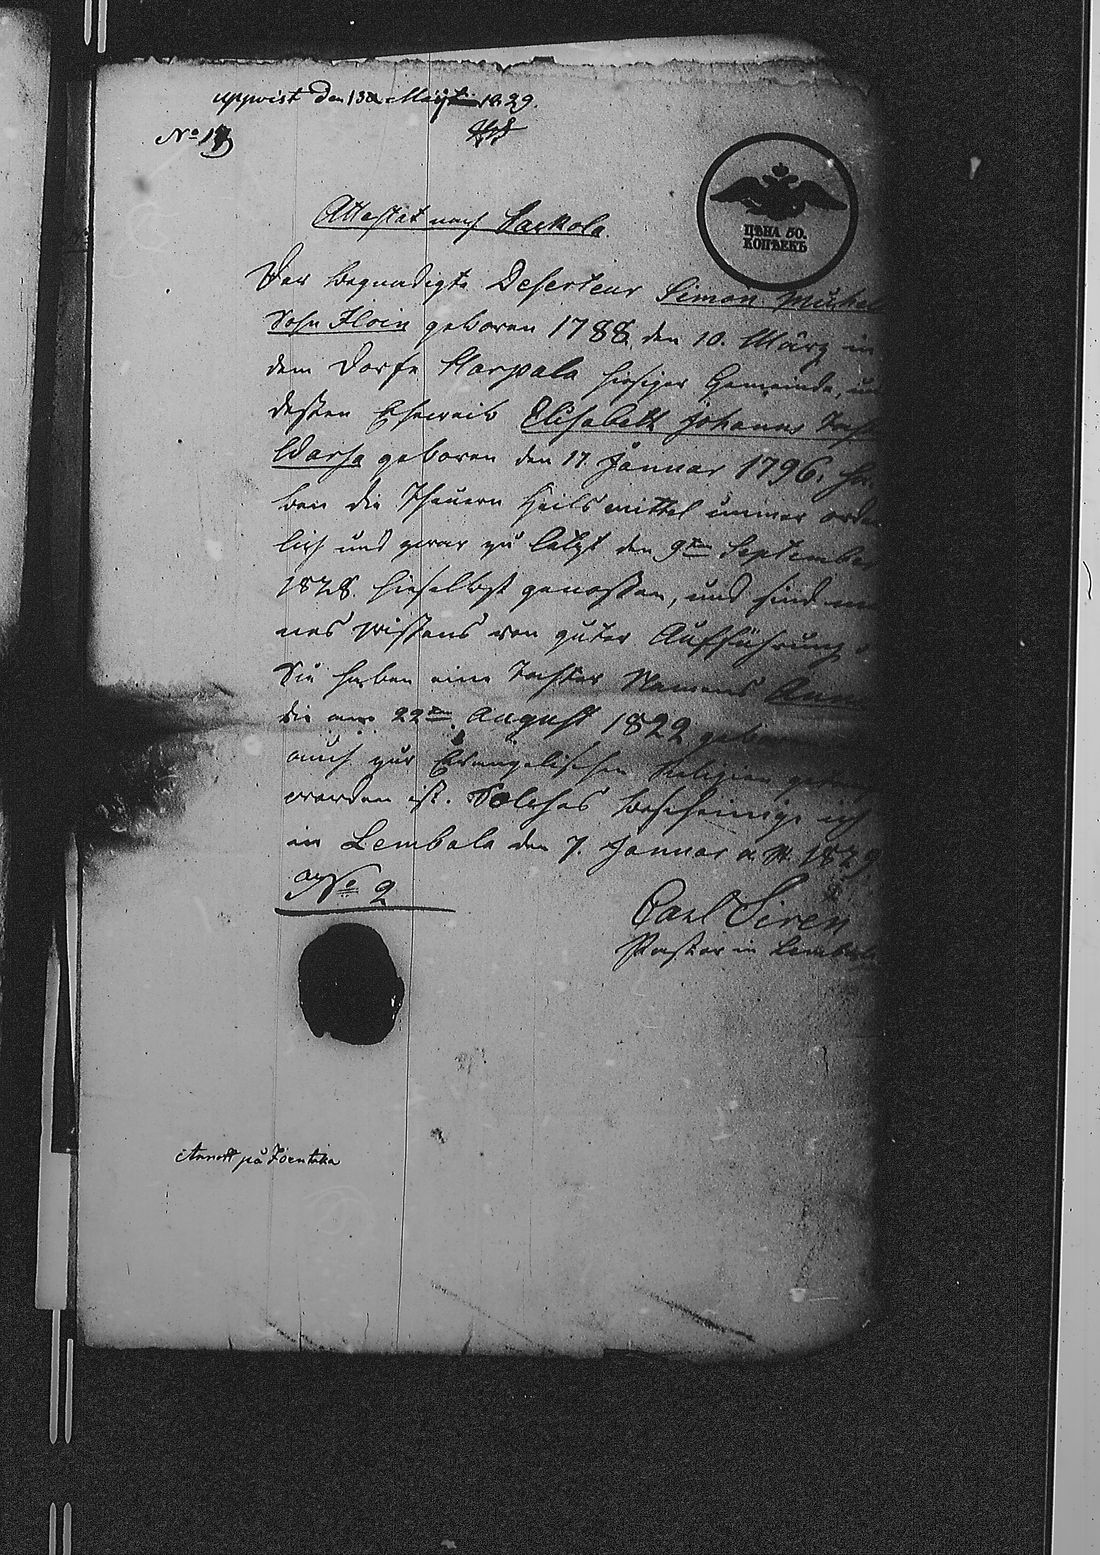 uppvist den 13 Maji 1829.
No 17
ЦѢНА 50.
КОПѢЕКЪ
Attestat nach Sackola.
Der begnadigte Deserteur Simon Michael
Sohn Iloin geboren 1788 den 10. März in
dem Dorfe Karpala hiesiger Gemeinde, un
dessen Eheweib Elisabeth Johanns Toch
geboren den 17. Januar 1796. ha
ben die Theuern Heilsmittel immer orden
lich und zwar zu letzt den 9ten September
1828. hieselbst genoßen, und sind mei
nes Wißens von guter Aufführung.
Sie haben eine Tochter Namens Anna
die am 22ten August 1822 geboren
auch zur Evangelischen Religion
worden ist. Solches bescheinige ich
in Lembala den 7. Januar a. St. 1829
No 2
Carl Sirén
Pastor in Lembala